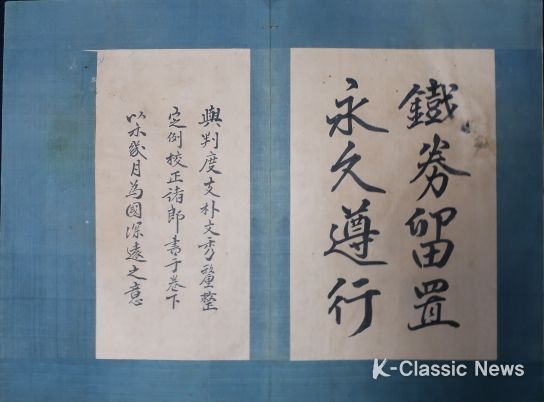 鐵券留置
永久遵行
與判度支朴文秀釐整
定例校正諸郎書于卷下
以示幾月為國深遠之意
K-Classic News